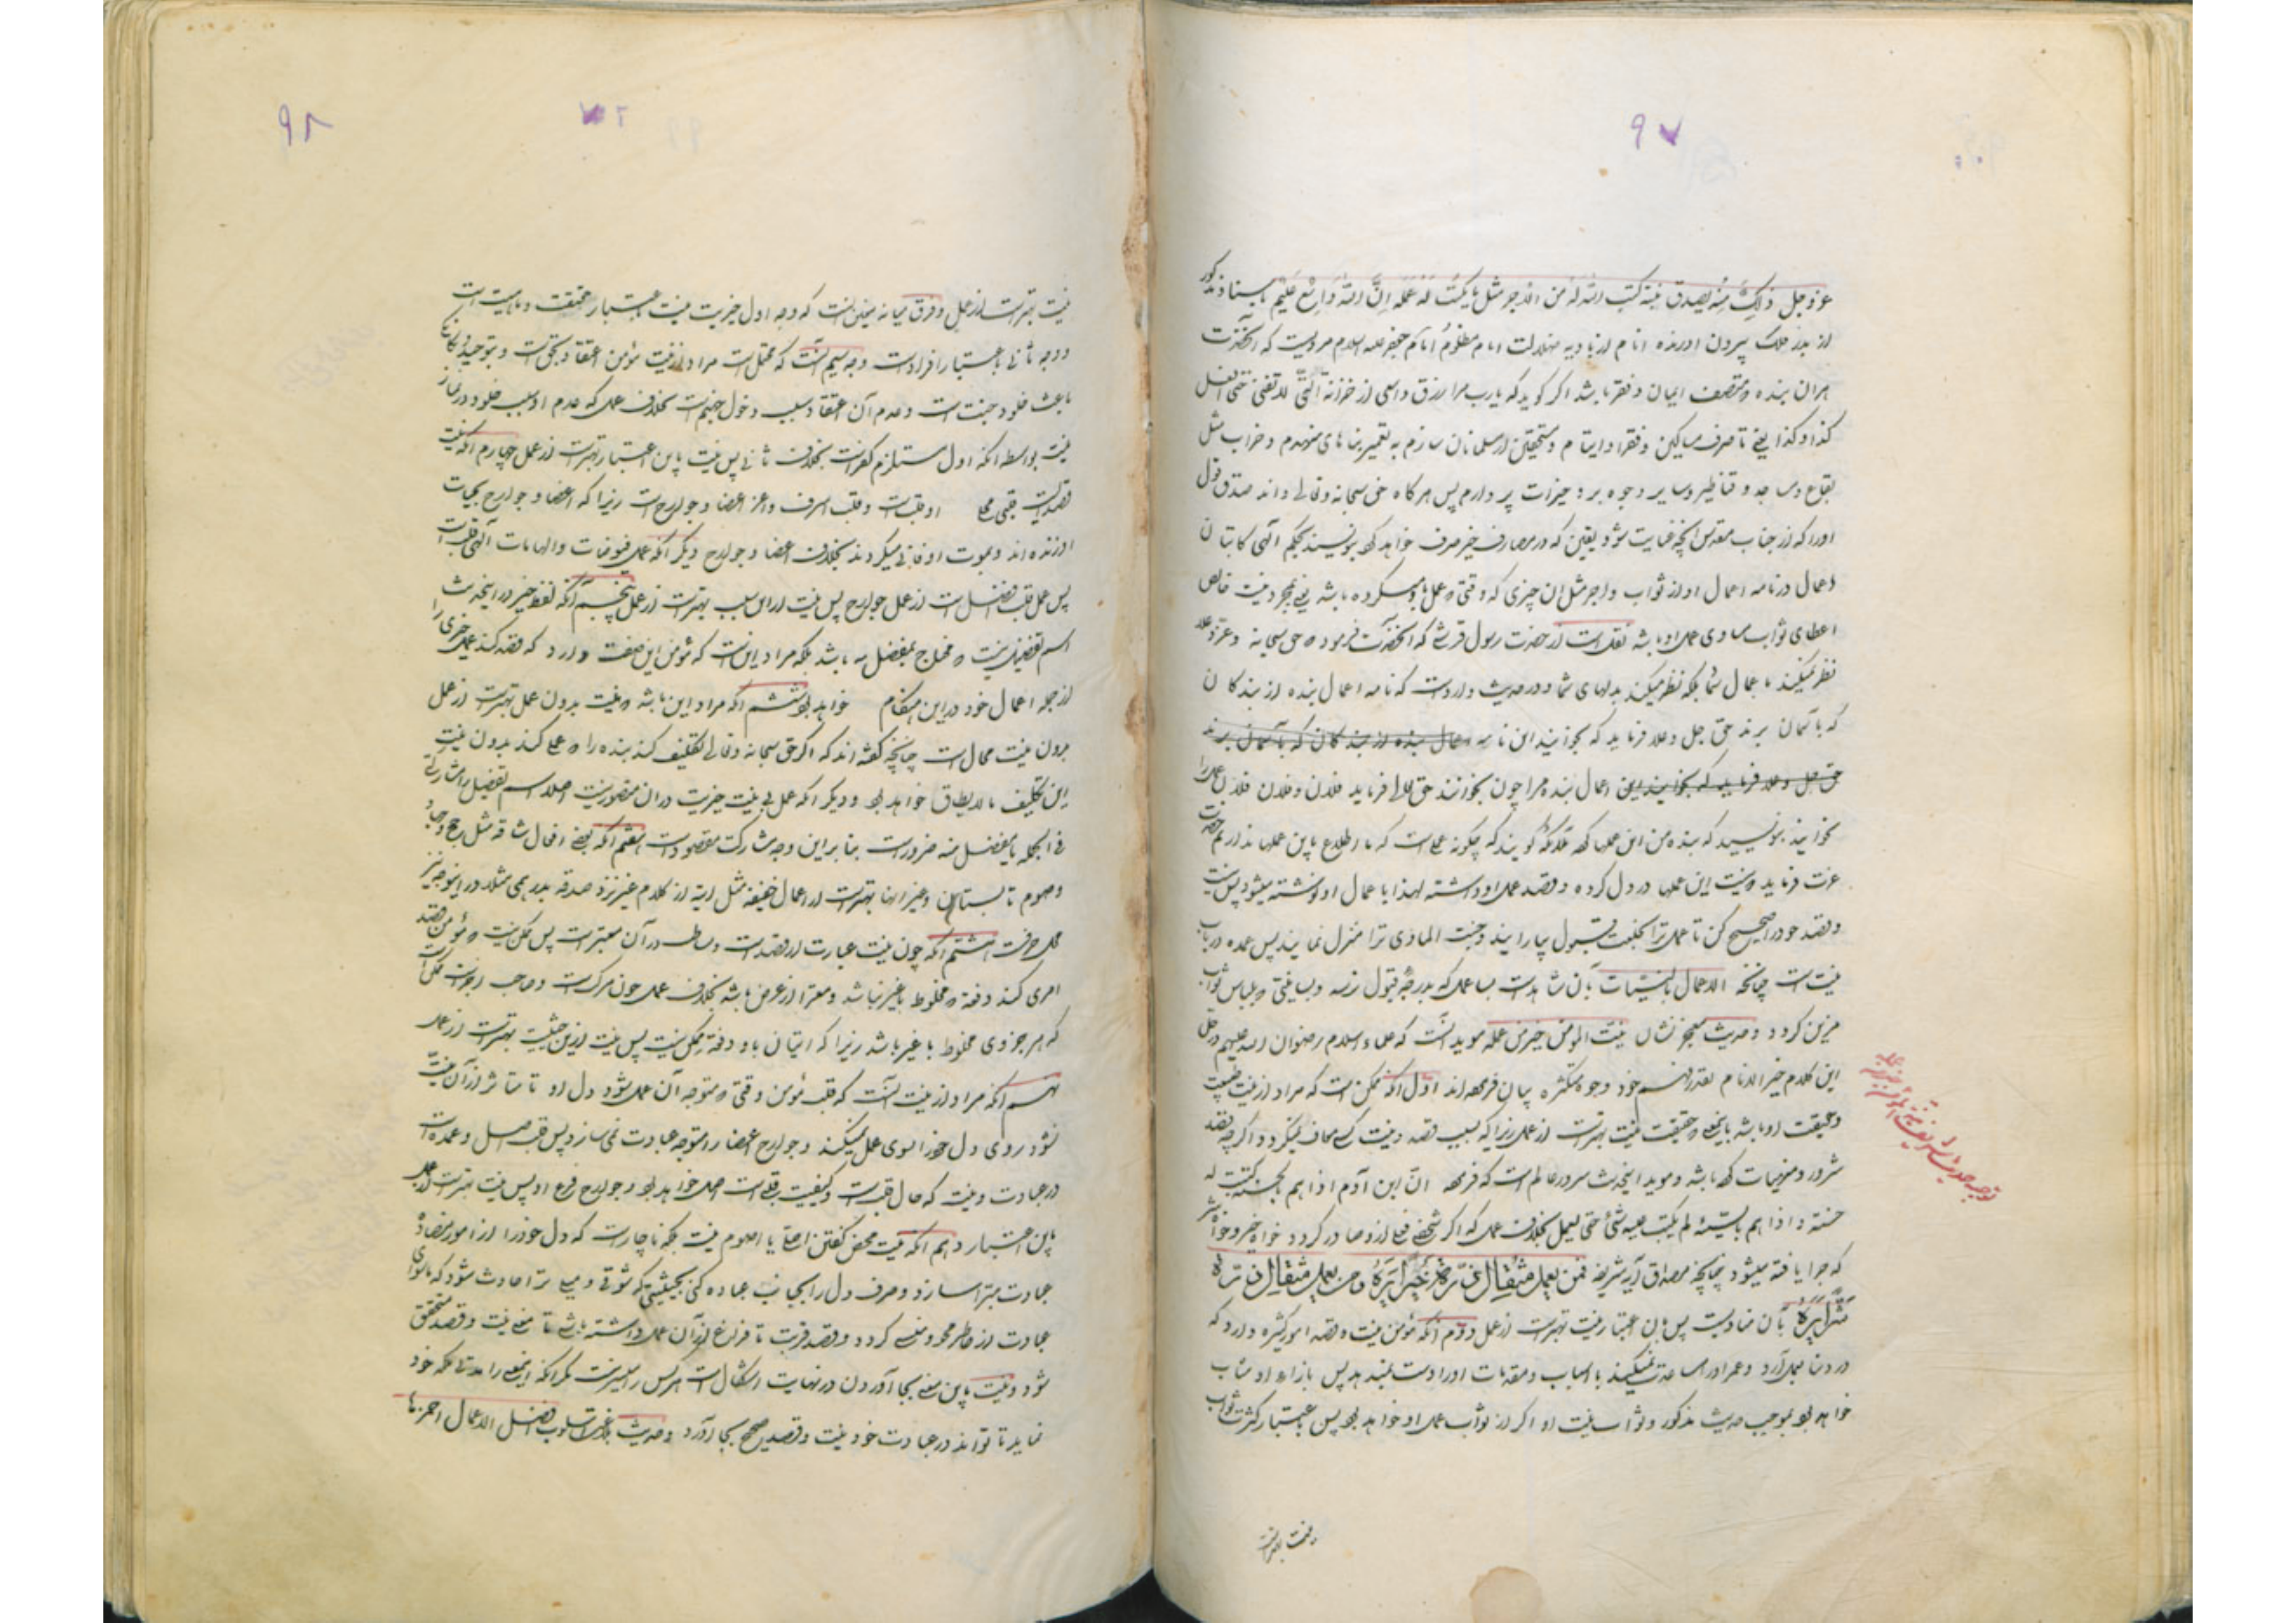 ۹۷
عز و جل ذلک منه بصدق نیته کتب الله له من الاجر مثل ما یکتب له لو عمله ان الله واسع علیم باسناد مذکور
از بدر فلک بیرون اورنده انام از بادیه ضلالت امام مظلوم امام جعفر علیه السلام مرویست که آنحضرت
هر ان بنده که متصف ایمان و فقر باشد اگر گوید که یا رب مرا رزق واسعی از خزنه حتی افعل
کذا و کذا یعنی تا صرف مساکین و فقرا و ایتام و مستحقین از مسلمانان سازم به تعمیر بناهای منهدم و خراب مثل
بقاع و مساجد و قناطیر و سایر وجوه بر و خیرات پردازم پس هر کاه حق سبحانه و تعالی داند صدق قول
او را که از جناب مقدس انچه عنایت شود یقین که در مصارف خیر صرف خواهد کرد بنویسند بحکم الهی کاتبان
اعمال در نامه اعمال او از ثواب و اجر مثل ان چیزی که وقتی که عمل باو میکرده باشد یعنی بمجرد نیت خالص
اعطای ثواب مساوی عمل او باشد نقلست از حضرت رسول قرشی که انحضرت فرمود که حق سبحانه و عز و علا
نظر نمیکند باعمال شما بلکه نظر میکند بدلهای شما و در حدیث واردست که نامه اعمال بنده از بندکان
که باسمان برند حق جل و علا فرماید که بخوانید این نامه اعمال بنده از بندکان که باسمان برند
حق جل و علا فرماید که بخوانید این اعمال بنده مرا چون بخوانند حق تعالی فرماید فلان و فلان فلان عمل را
بخوانید بنویسید که بنده من این عملها کرد ملائکه کویند که چکونه عملست که ما اطلاع باین عملها نداریم حضرت
عزت فرماید که نیت این عملها در دل کرده و قصد عمل او داشته لهذا باعمال او نوشته میشود پس نیت
و قصد خود را صحیح کن تا عمل ترا بخلعت قبول بیارایند و جنت الماوی ترا منزل نمایند پس عمده در باب
نیت است چنانچه الاعمال بالنیات بان شاهدست بسا عمل که بدرجه قبول نرسد و بسا نیتی که بلباس ثواب
مزین کردد و حدیث معجز نشان نیة المومن خیر من عمله موید انست که علماء اسلام رضوان الله علیهم در حل
این کلام خیر الانام بقدر فهم خود وجوه متکثره بیان فرموده اند اول انکه ممکن است که مراد از نیت طبیعت
و حقیقت او باشد باینمعنی که حقیقت نیت بهترست از عمل زیرا که بسبب قصد و نیت کسی معاف نمیکردد اگرچه قصد
شرور و منهیات کرده باشد و موید اینحدیث سرور عالم است که فرموده ان ابن آدم اذا هم بالحسنة کتبت له
حسنة و اذا هم بالسیئة لم یکتب علیه شئ حتی یعمل بخلاف عمل که اکر شخصی فعلی از او صادر کردد خواه خیر و خواه شر
که جزا یافته میشود چنانچه مصداق آیه شریفه فمن یعمل مثقال ذرة خیرا یره و من یعمل مثقال ذرة
شرا یره بان منادیست پس باین اعتبار نیت بهترست از عمل دوم انکه مؤمن نیت و قصد امور کثیره دارد که
در دنیا بعمل آرد و عمر او را مساعدت نمیکند یا اسباب و مقدمات او را دست نمیدهد پس بازاء او مثاب
خواهد بود بموجب حدیث مذکور و ثواب نیت او اکثر از ثواب عمل او خواهد بود پس باعتبار کثرت ثواب
نیت بهترست
توجیه حدیث شریف نیة المؤمن خیر من عمله
۹۸
نیت بهترست از عمل و فرق میانه اینست که وجه اول خیریت نیت باعتبار حقیقت و ماهیت است
و وجه ثانی باعتبار افرادست وجه سیم انست که محتملست مراد از نیت مؤمن اعتقاد بحق است و بتوحید
باعث خلود جنت است و عدم آن اعتقاد سبب دخول جهنم است بخلاف عمل که عدم او سبب خلود در نار
نیست بواسطه انکه اول مستلزم کفر است بخلاف ثانی پس نیت باین اعتبار بهترست از عمل چهارم انکه نیت
قصدیست قلبی محل او قلبست و قلب اشرف و اعز اعضا و جوارح است زیرا که اعضا و جوارح بحیات
او زنده اند و بموت او فانی میکردند بخلاف اعضا و جوارح دیگر انکه محل فیوضات و الهامات الهی قلبست
پس عمل قلب افضل است از عمل جوارح پس نیت از این سبب بهترست از عمل پنجم آنکه لفظ خیر در اینحدیث
اسم تفضیل نیست که محتاج بمفضل به باشد بلکه مراد اینست که مؤمن این صفت دارد که قصد کند عمل خیری را
از جمله اعمال خود در این هنگام خواهد بود ششم انکه مراد این باشد که نیت بدون عمل بهترست از عمل
بدون نیت محال است چنانچه گفته اند که اکر حق سبحانه و تعالی تکلیف کند بنده را که عملی کند بدون نیت
این تکلیف ما لا یطاق خواهد بود و دیگر انکه عمل بی نیت خیریت در ان متصور نیست اصلا و اسم تفضیل را مشارکت
فی الجمله با مفضل منه ضرورست بنابراین وجه مشارکت مقصودست هفتم انکه بعضی افعال شاقه مثل حج و جهاد
و صوم تابستان و غیر انها بهترست از اعمال خفیفه مثل ایه از کلام عزیز و صدقه بدرهمی مثلا
هشتم انکه چون نیت عبارت از قصدست و در آن معتبرست پس ممکن نیست که مؤمن قصد
امری کند دفعة که مخلوط باغیر نباشد و معرا از غرض باشد بخلاف عمل چون مرکبست و صاحب اجزاست ممکن است
که هر جزوی مخلوط با غیر باشد زیرا که اتیان باو دفعة ممکن نیست پس نیت از این حیثیت بهترست از عمل
نهم آنکه مراد از نیت انست که قلب مؤمن وقتی که متوجه آن عمل شود دل او تا متاثر از آن نیت
نشود روی دل خود را بسوی عمل نمیکند و جوارح اعضا را متوجه عبادت نمی سازد پس قلب اصل و عمده است
در عبادت و نیت که حال قلبست و کیفیت قلبی است اصل خواهد بود و جوارح فرع او پس نیت بهترست از عمل
باین اعتبار دهم انکه نیت محض کفتن اصلی یا اصوم نیست بلکه ناچارست که دل خود را از امور متضاده
عبادت مبرا سازد و صرف دل را بجانب عباده کنی بحیثیتی که شوقی و میلی ترا حادث شود که ماسوای
عبادت از خاطر محو و منسی کردد و قصد قربت تا فراغ از آن عمل داشته باشی تا معنی نیت و قصد متحقق
شود و نیت باین معنی بجا آوردن در نهایت اشکال است هر کس را میسر نیست مکر انکه اینمعنی را مدتی ملکه خود
نماید تا تواند در عبادت خود نیت و قصد صحیح بجا آورد و حدیث بلاغت اسلوب افضل الاعمال احمزها